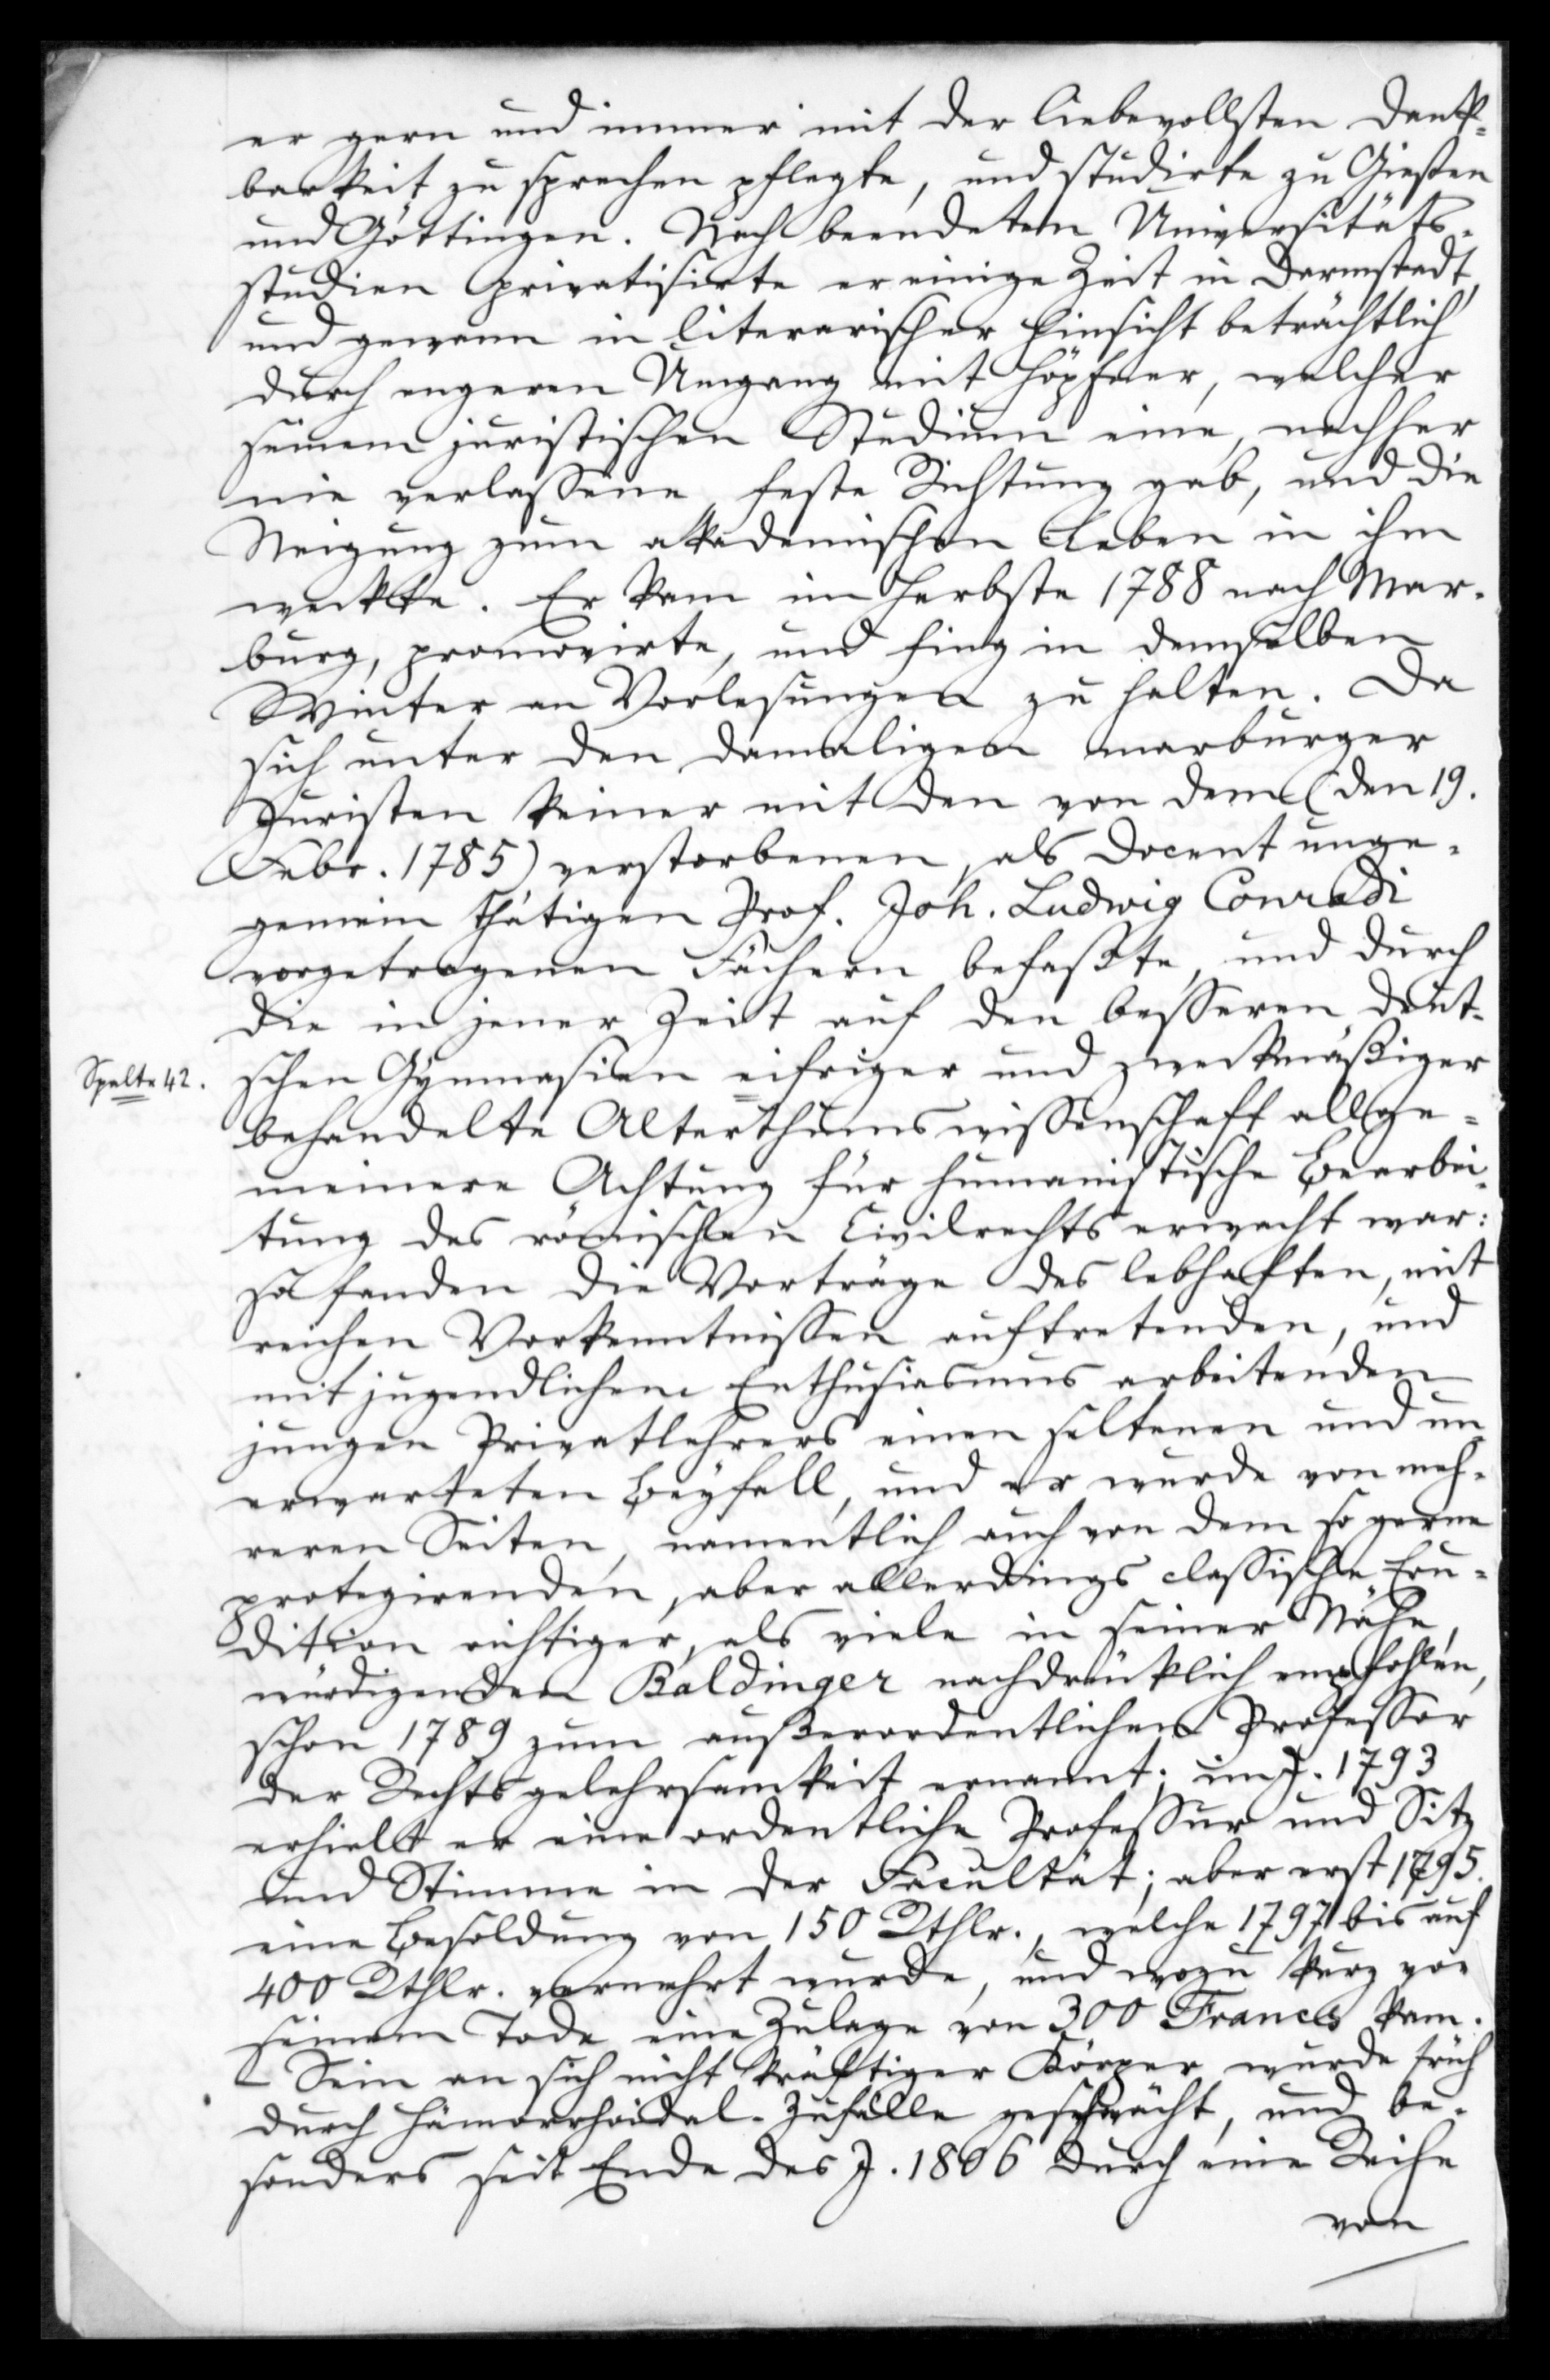 er gern und immer mit der liebevollsten Dank-
barkeit zu sprechen pflegte, und studirte zu Gießen
und Göttingen. Nach beendeten Universitäts-
studien privatisirte er einige Zeit in Darmstadt,
und gewann in literarischer Hinsicht beträchtlich
durch engeren Umgang mit Höpfner, welcher
seinem juristischen Studium eine, nachher
nie verlassene, feste Richtung gab, und die
Neigung zum akademischen Leben in ihm
weckte. Er kam im Herbste 1788 nach Mar-
burg, promovirte, und fing in demselben
Winter an Vorlesungen zu halten. Da
sich unter den damaligen marburger
Juristen keiner mit den von dem (den 19.
Febr. 1785) verstorbenen, als Docent unge-
gemein thätigen Prof. Joh. Ludwig Conradi
vorgetragenen Fächern befaßte, und durch
die in jener Zeit auf den besseren deut-
Spalte 42. schen Gymnasien eifriger und zweckmäßiger
behandelte Alterthumswissenschaft allge-
meinere Achtung für humanistische Bearbei-
tung des römischen Civilrechts erwacht war:
so fanden die Vorträge des lebhaften, mit
reichen Vorkenntnissen auftretenden, und
mit jugendlichem Enthusiasmus arbeitenden
jungen Privatlehrers einen seltenen und un-
erwarteten Beyfall, und er wurde von meh-
reren Seiten, namentlich auch von dem so gerne
protegirenden, aber allerdings classische Eru-
dition richtiger, als viele in seiner Nähe,
würdigenden Baldinger nachdrücklich empfohlen,
schon 1789 zum außerordentlichen Professor
der Rechtsgelehrsamkeit ernannt; im J. 1793
erhielt er eine ordentliche Professur und Sitz
und Stimme in der Facultät; aber erst 1795.
eine Besoldung von 150 Rthlr., welche 1797 bis auf
400 Rthlr. vermehrt wurde, und wozu kurz vor
seinem Tode eine Zulage von 300 Francs kam.
– Sein an sich nicht kräftiger Körper wurde früh
durch Hämorrhoidal-Zufälle geschwächt, und be-
sonders seit Ende des J. 1806 durch eine Reihe
von